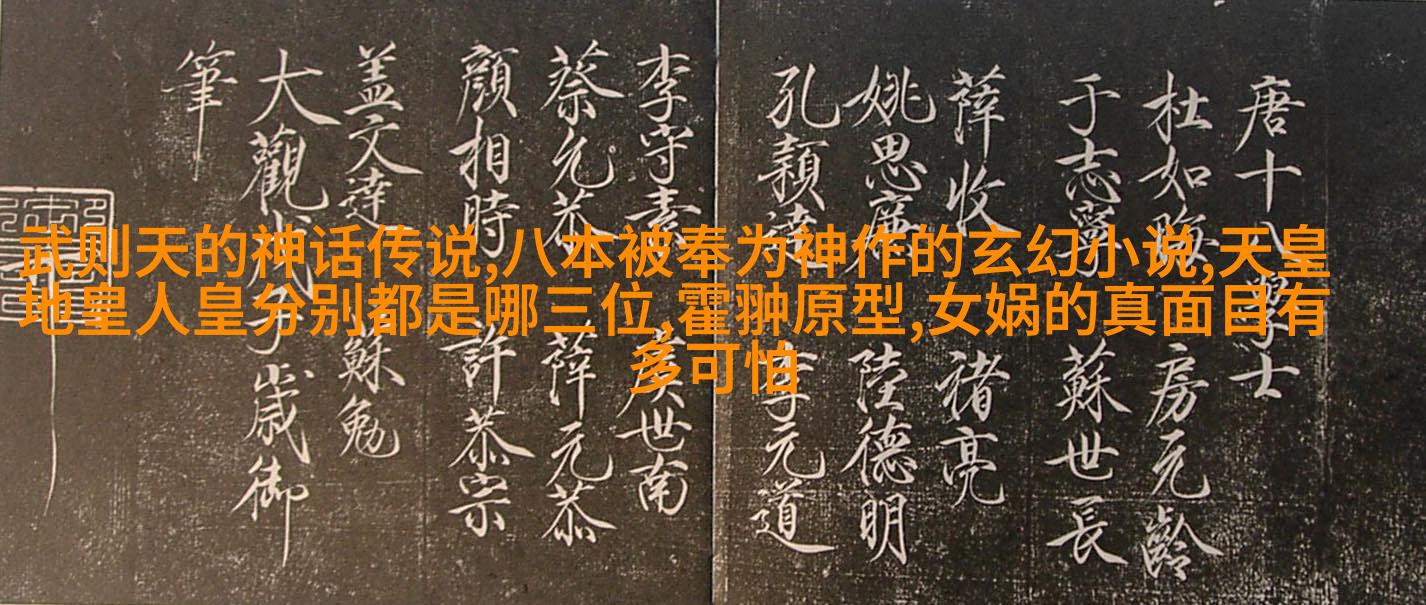 唐十八學士
杜如晦 房元齡
于志寧 蘇世長
薛收 褚亮
姚思廉 陸德明
孔穎達 李元道
李守素 虞世南
蔡允恭 薛元恭
顏相時 許恭宗
盖文達 蘇勉
大觀戊子歲御
筆
武则天的神话传说,八本被奉为神作的玄幻小说,天皇
地皇人皇分别都是哪三位,霍翀原型,女娲的真面目有
多可怕